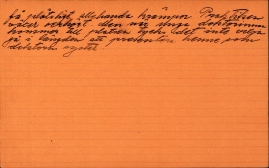 få plötsligt allehanda krämpor
väcer verkort. Men när unga doktorinnan
kommer till platsen tycks det inte vilja
gå i längden att presentera henne som
doktorns syster